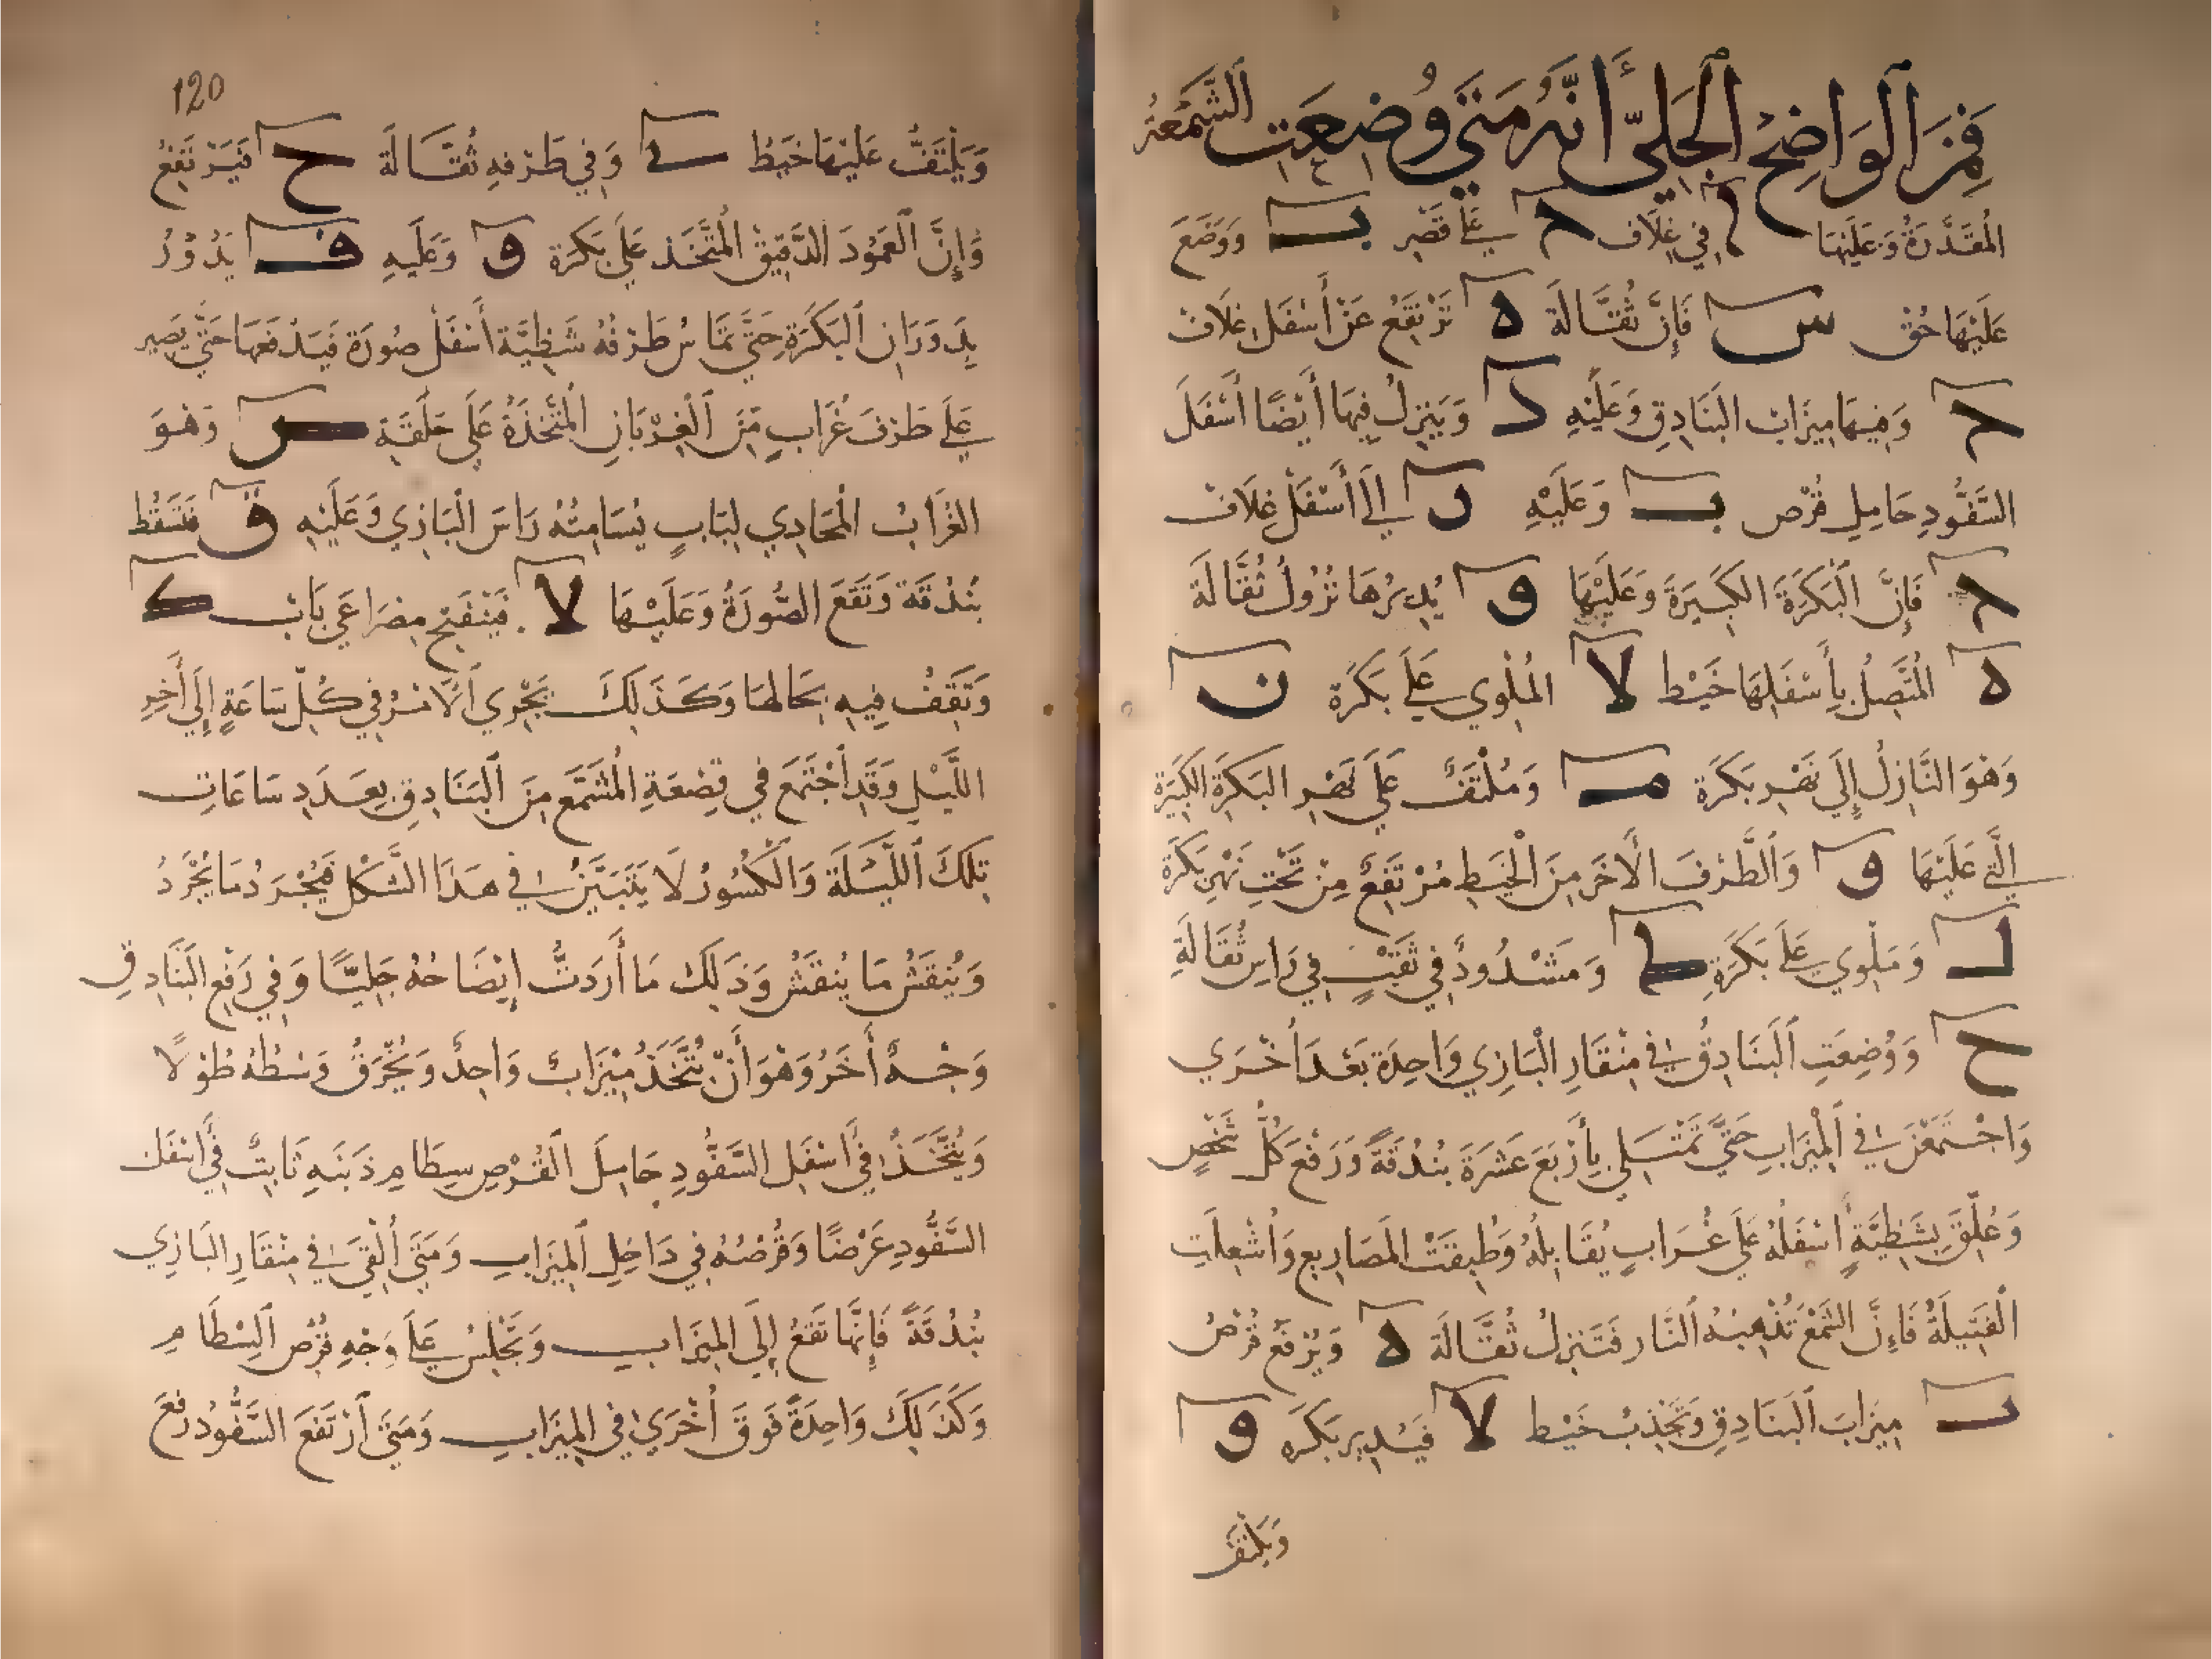 فَمِنَ ٱلْوَاضِحِ ٱلْجَلِيِّ أَنَّهُ مَتَى وُضِعَتِ ٱلشَّمْعَةُ
المُقَدَّرَةُ وَعَلَيْهَا ا فِي غِلَاف ح عَلَى قَصْرِ ب وَوَضَعَ
عَلَيْهَا حُقّ س فَإِنَّ ثُقَّالَة ه تَرْتَفِعُ عَنْ أَسْفَلِ غِلَاف
ح وَفِيهَا مِيزَابُ البَنَادِقِ وَعَلَيْهِ د وَيَنْزِلُ فِيهَا أَيْضًا أَسْفَلَ
السَّفُّودِ حَامِلِ قُرْص ب وَعَلَيْهِ ر إِلَى أَسْفَلِ غِلَاف
ح فَإِنَّ ٱلْبَكَرَةَ الكَبِيرَةَ وَعَلَيْهَا و يُدِيرُهَا نُزُولُ ثُقَّالَة
ه المُتَّصِلُ بِأَسْفَلِهَا خَيْط لا المُلْوِي عَلَى بَكَرَة ن
وَهُوَ النَّازِلُ إِلَى نَهْرِ بَكَرَة م وَمُلْتَفٌّ عَلَى نَهْرِ البَكَرَة الكَبِيرَة
الَّتِي عَلَيْهَا و وَالطَّرَفَ الأَخَرَ مِنَ الْخَيْطِ مُرْتَفِعٌ مِنْ تَحْتِ نَهْرِ بَكَرَة
ل وَمَلْوِي عَلَى بَكَرَةِ ط وَمَشْدُودٌ فِي ثَقْبٍ فِي رَاسِ ثُقَالَةِ
ح وَوُضِعَتِ ٱلْبَنَادِقُ فِي مِنْقَارِ الْبَازِي وَاحِدَة بَعْدَ أُخْرَي
وَاجْتَمَعْنَ فِي ٱلْمِيزَابِ حَتَّى تَمْتَلِي بِأَرْبَعَ عَشَرَةَ بُنْدُقَةً وَرَفَعَ كُلَّ شَخْصٍ
وَعُلِّقَ بِشَظِيَّةٍ أَسْفَلُهُ عَلَى غُرَابٍ يُقَابِلُهُ وَطُبِقَتْ المَصَارِيع وَاُشْعِلَتِ
الْفَتِيلَةُ فَإِنَّ الشَّمْعَ تُذْهِبُهُ ٱلنَّار فَتَنْزِلُ ثُقَّالَة ه وَيَرْفَعُ قُرْصُ
ب مِيزَابَ ٱلْبَنَادِقِ وَتَجْذِبُ خَيْط لا فَيُدِير بَكَرَه و
وَيَلْتَفّ
120
وَيَلْتَفُّ عَلَيْهَا خَيْطُ ي وَفِي طَرْفِهِ ثُقَّالَة ح فَيَرْتَفِعُ
وَإِنَّ ٱلْعَمُودَ الدَّقِيقَ الْمُتَّخَذ عَلَى بَكَرَة و وَعَلَيهِ ف يَدُوْرُ
بِدَوَرَانِ ٱلبَكَرَةِ حَتَّى تَمَاسُ طَرْفُهُ شَظِيَّة أَسْفَلَ صُورَة فَيَدْفَعَهَا حَتَّى يَصِير
عَلَى طَرْفِ غُرَابٍ مِنَ ٱلْغِرْبَانِ الْمُتَّخَذَةُ عَلَى حَلَقَةِ س وَهُوَ
الغُرَابُ الْمُحَاذِي لِبَابٍ يُسَامِتُهُ رَاسَ الْبَازِي وَعَلَيْهِ ق فَتَسْقُط
بُنْدُقَة وَتَقَعَ الصُّورَةُ وَعَلَيْهَا لا فَيَنْفَتِح مِصْرَاعَي بَاب ك
وَتَقِفُ فِيهِ بِحَالِهَا وَكَذَلِكَ يَجْرِي ٱلأَمْرُ فِي كُلِّ سَاعَةٍ إِلَى أَخِرِ
اللَّيْلِ وَقَدِ اُجْتَمَعَ فِي قِصْعَةِ المُشَمَّعِ مِنَ ٱلْبَنَادِقِ بِعَدَدِ سَاعَاتِ
تِلْكَ ٱللَّيْلَة وَٱلْكُسُورُ لَا يَتَبَيَّنُ فِي هَذَا الشَّكْلِ فَيُجْرَدُ مَا يُجْرَدُ
وَيُنْقَشُ مَا يُنْقَشُ وَذَلِكَ مَا أَرَدتُّ إِيْضَاحُهُ جَلِيًّا وَفِي رَفْعِ البَنَادِقِ
وَجْهٌ أَخَرُ وَهُوَ أَنْ يُتَّخَذَ مِيْزَابٌ وَاحِدٌ وَيُخْرَقُ وَسْطُهُ طُوْلًا
وَيُتَّخَذُ فِي أَسْفَلِ السَّفُّودِ حَامِلَ ٱلْقُرْصِ سِطَام ذَنَبِهِ ثَابِتٌ فِي أَسْفَلَ
السَّفُّودِ عَرْضًا وَقُرْصُهُ فِي دَاخِلِ ٱلْمِيزَابِ وَمَتَى أُلْقِيَ فِي مِنْقَارِ البَازِي
بُنْدُقَةً فَإِنَّهَا تَقَعُ إِلَى المِيزَابِ وَتَجْلِسُ عَلَى وَجْهِ قُرْصِ ٱلسِّطَامِ
وَكَذَلِكَ وَاحِدَةً فَوقَ أُخْرَي فِي المِيزَابِ وَمَتَى ٱرْتَفَعَ السَّفُّودُ رَفَعَ